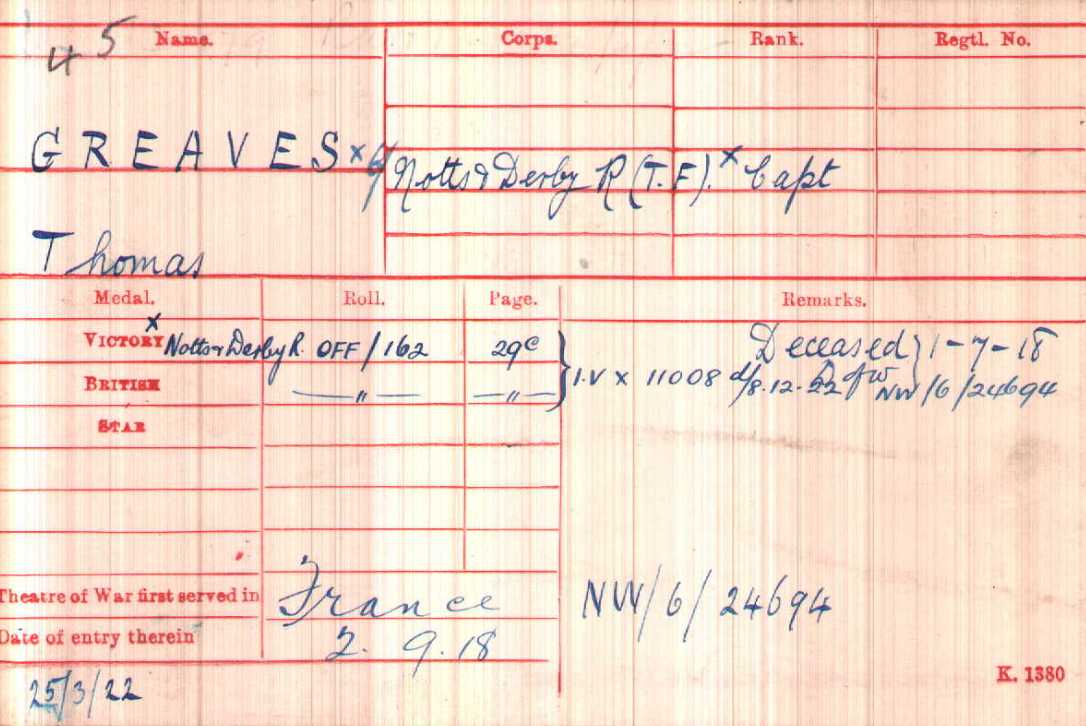 45
Name. Corps. Rank. Regtl. No.
GREAVES × 6/Notts & Derby R (T.F). × Capt
Thomas
Medal. Roll. Page. Remarks.
VICTORY × Notts & Derby R. OFF/162 29C Deceased } 1-7-18
BRITISH —〃— —〃— } I.V × 11008 d/8.12.22 NW/6/24694
STAR
Theatre of War first served in France NW/6/24694
Date of entry therein 2.9.18
K. 1380
25/3/22